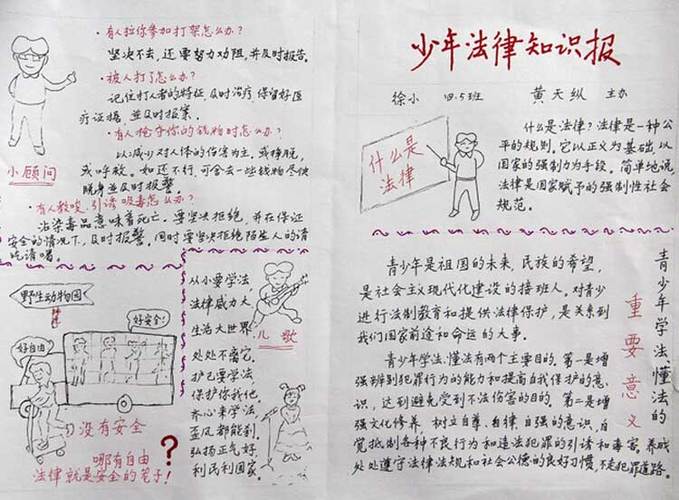 ·有人拉你参加打架怎么办?
坚决不去,还要努力劝阻,并及时报告。
·被人打了怎么办?
记住打人者的特征,及时治疗,保留好医
疗证据,并及时报案。
·有人抢夺你的钱物时怎么办?
以减少对人体的伤害为主,或挣脱,
或呼救。如还不行,可舍去一些钱物尽快
脱身并及时报警。
小顾问
·有人教唆、引诱吸毒怎么办?
沾染毒品意味着死亡。要坚决拒绝,并在保证
安全的情况下,及时报警。同时要坚决拒绝陌生人的请
吃请喝。
野生动物园
好安全!
好自由
没有安全
哪有自由
法律就是安全的笼子!
?
从小要学法
法律威力大
生活大世界
处处不离它。
护己要学法,
保护你我他。
齐心来学法,
歪风都能刹。
弘扬正气好
利民利国家。
儿歌
少年法律知识报
徐小 四.5班 黄天纵 主办
什么是
法律
什么是法律?法律是一种公
平的规则。它以正义为基础,以
国家的强制力为手段。简单地说,
法律是国家赋予的强制性社会
规范。
青少年学法、懂法的
重要意义
青少年是祖国的未来,民族的希望,
是社会主义现代化建设的接班人。对青少
进行法制教育和提供法律保护,是关系到
我们国家前途和命运的大事。
青少年学法、懂法有两个主要目的。第一是增
强辨别犯罪行为的能力和提高自我保护的意
识,达到避免受到不法伤害的目的。第二是增
强文化修养,树立自尊、自律、自强的意识,自
觉抵制各种不良行为和违法犯罪的引诱和毒害。养成
处处遵守法律法规和社会公德的良好习惯,不走犯罪道路。